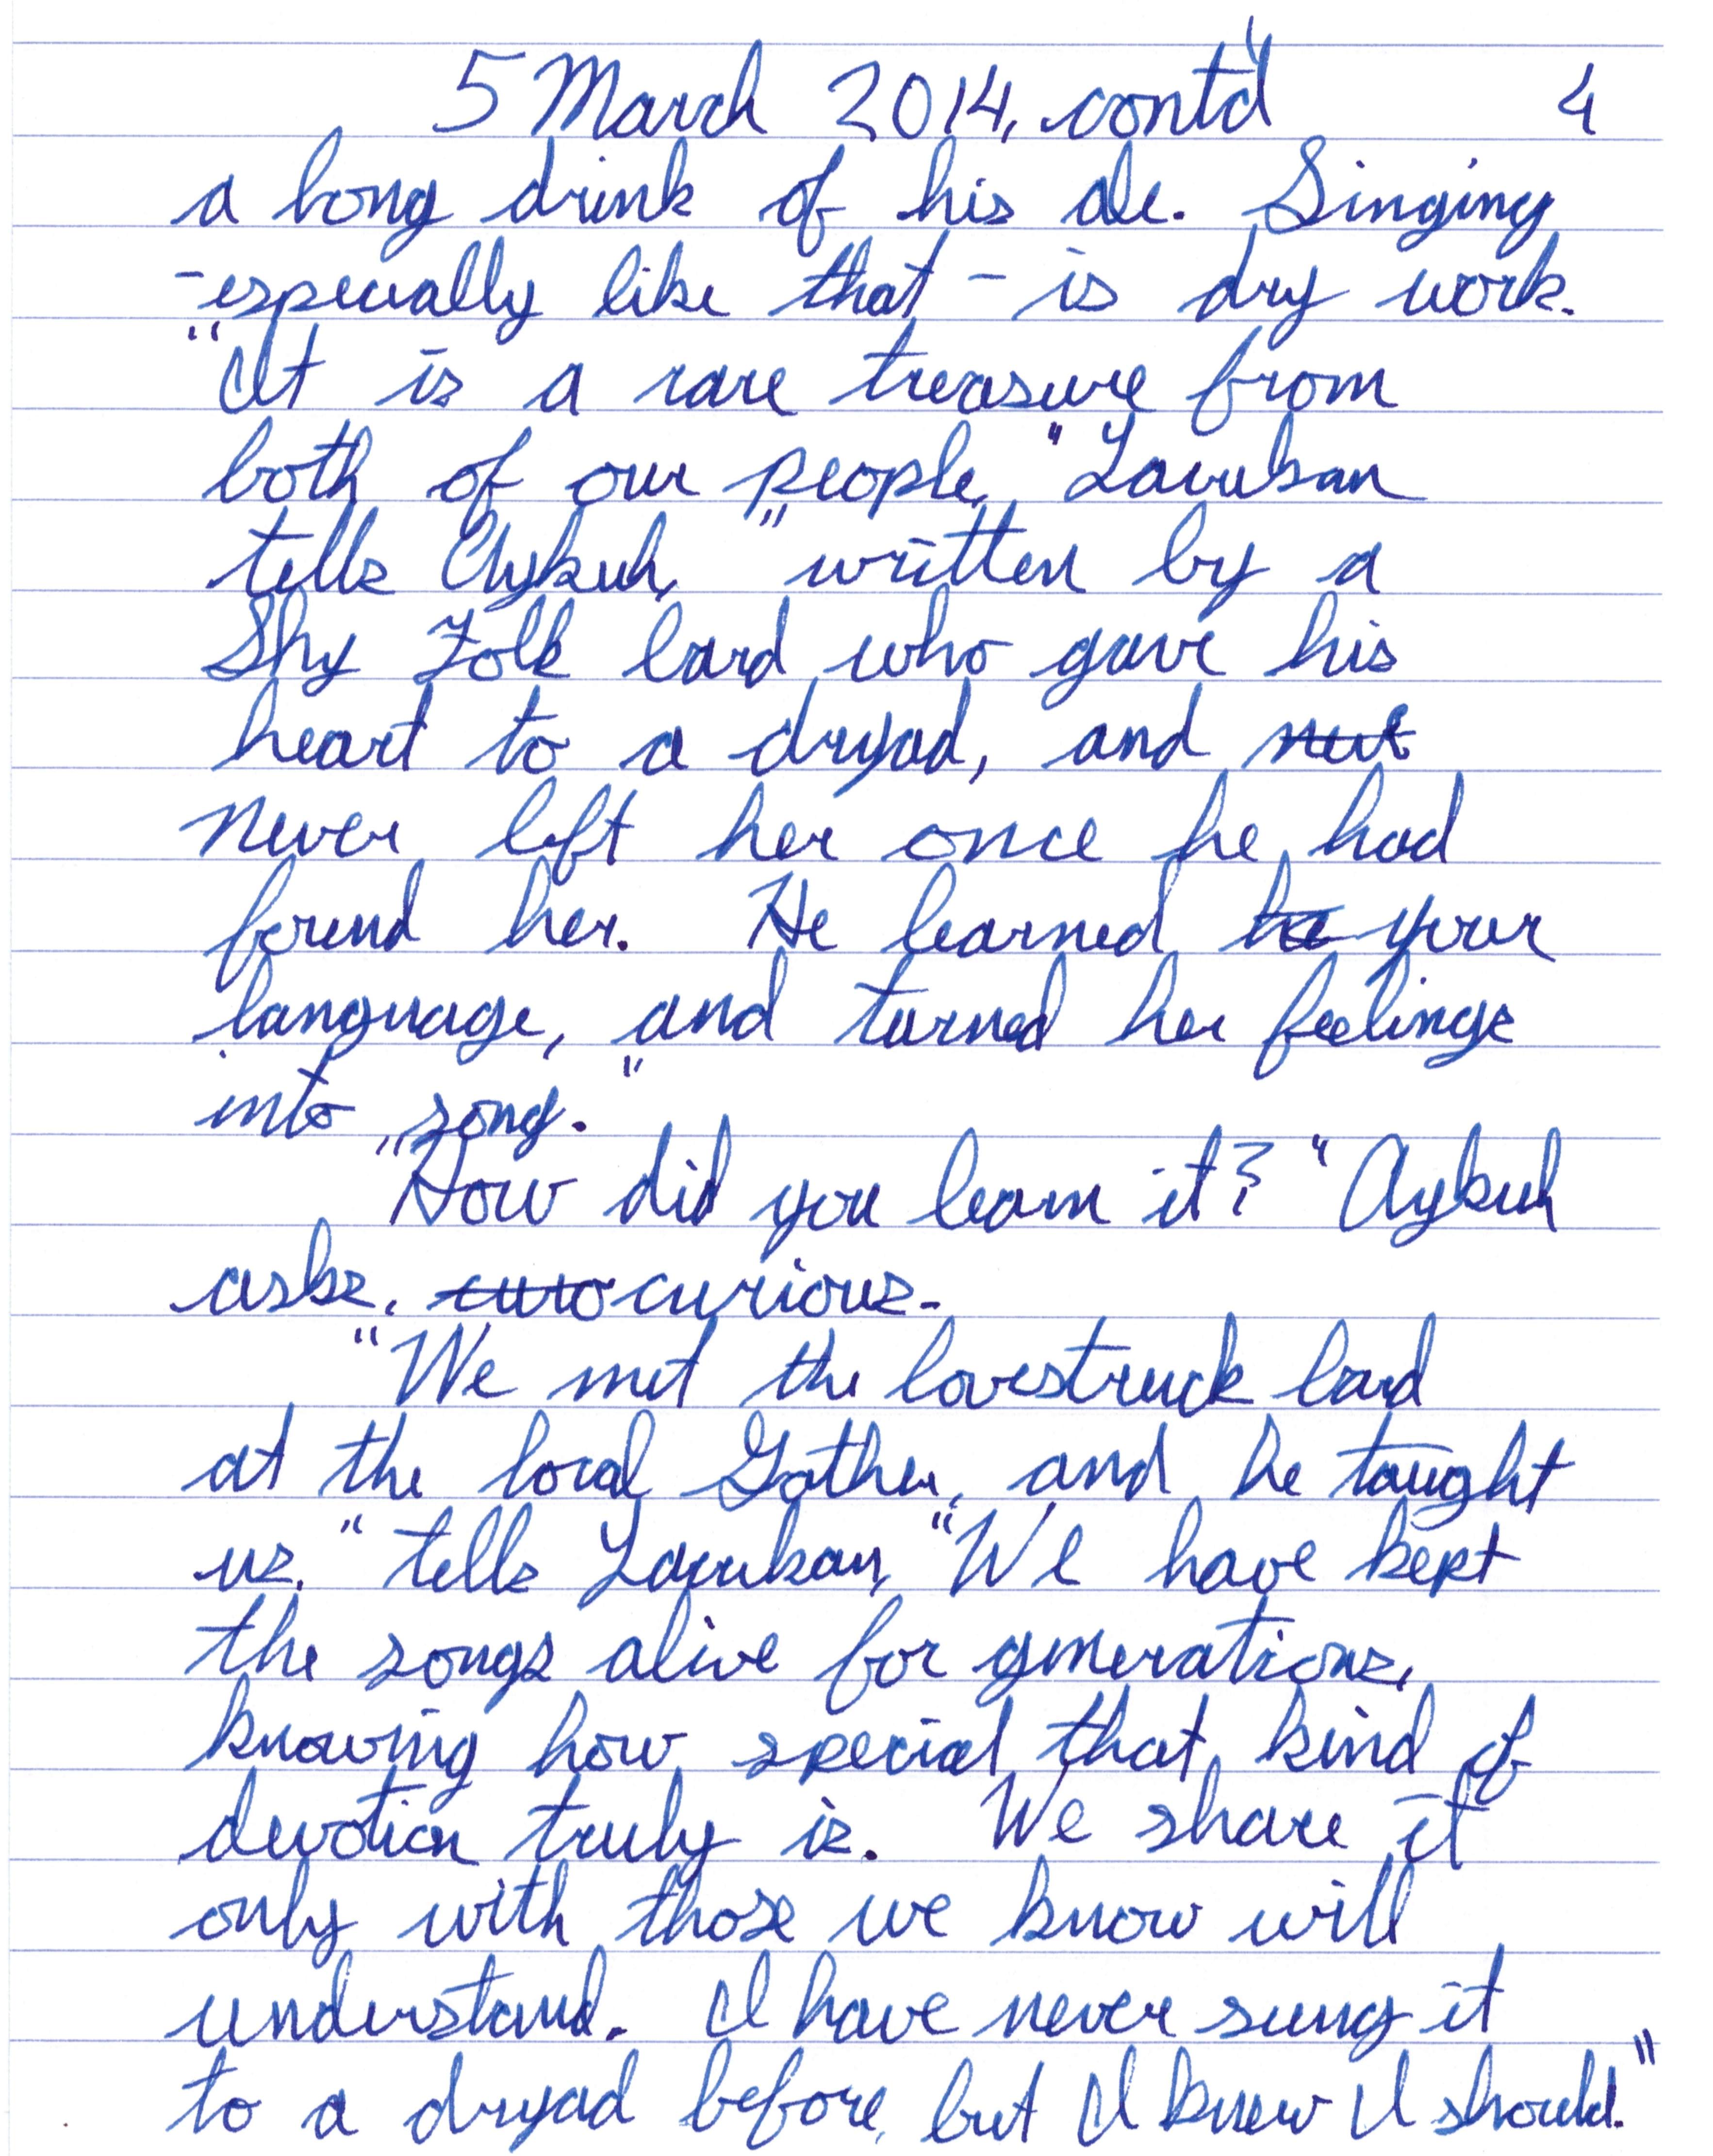 5 March 2014, cont'd 4
a long drink of his ale. Singing
-especially like that - is dry work.
"It is a rare treasure from
both of our people," Lavukan
tells Aykuh, "written by a
Shy Folk bard who gave his
heart to a dryad, and
never left her once he had
found her. He learned your
language, and turned her feelings
into song."
"How did you learn it?" Aykuh
asks, curious.
"We met the lovestruck bard
at the local Gather, and he taught
us," tells Lavukan, "We have kept
the songs alive for generations,
knowing how special that kind of
devotion truly is. We share it
only with those we know will
understand. I have never sung it
to a dryad before, but I knew I should."